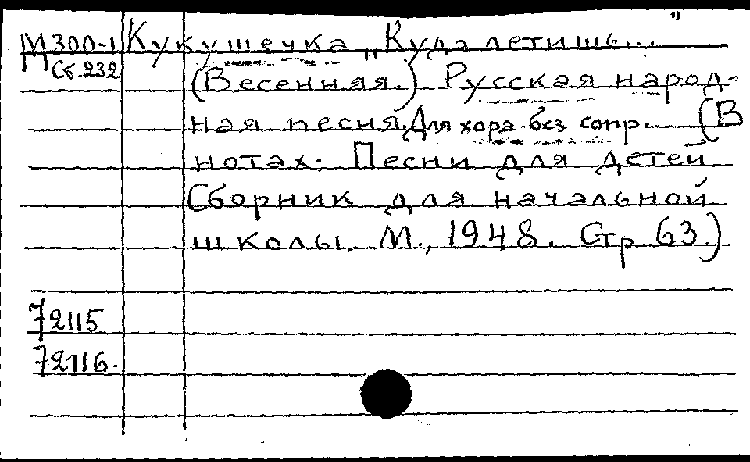 М300-1 Кукушечка „Куда летишь..."
П Сб.232 (Весенняя.) Русская народ-
ная песня. Для хора без сопр. (В
нотах. Песни для детей
Сборник для начальной
школы. М., 1948. Стр 63.)
72115
72116.